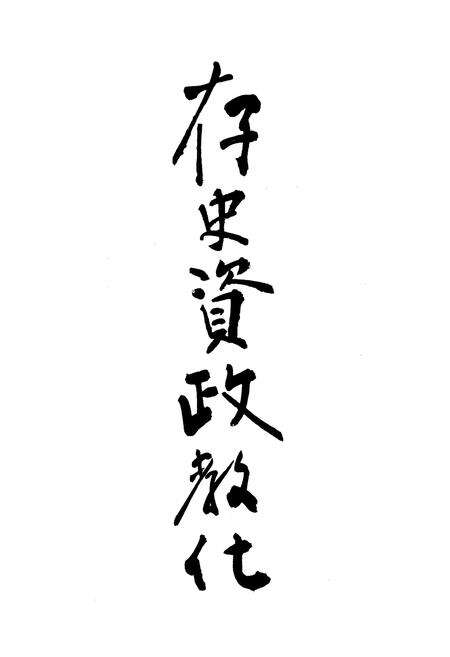 存史資政教化